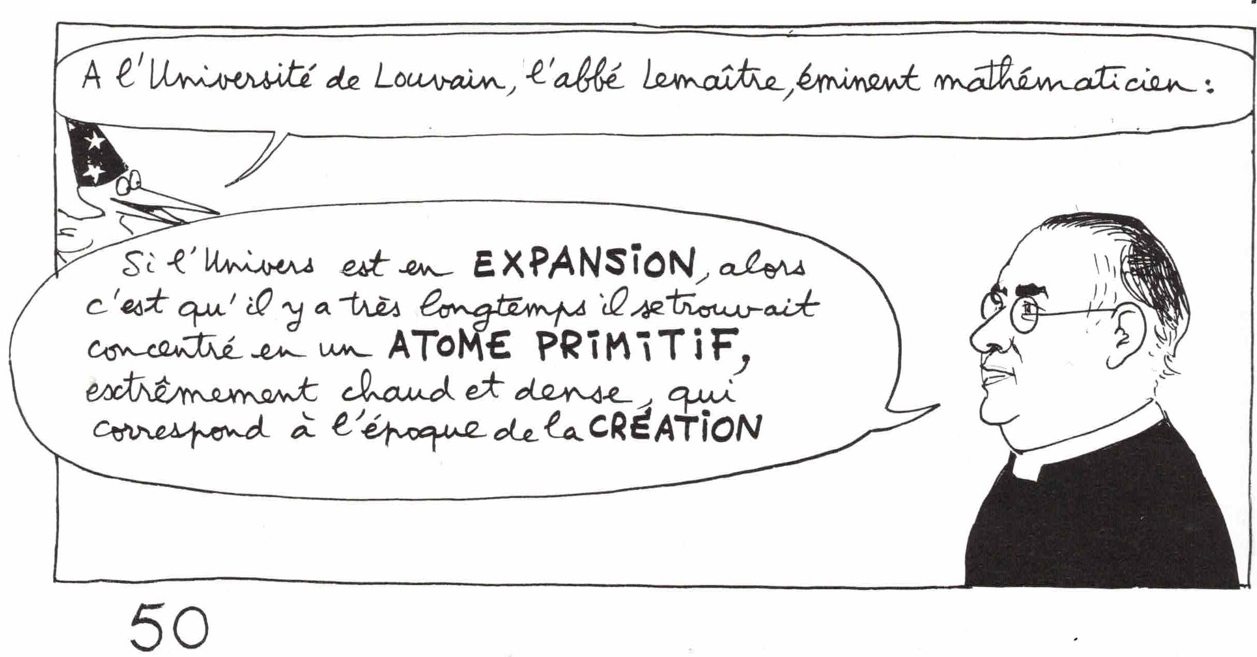 A l'Université de Louvain, l'abbé Lemaître, éminent mathématicien :
Si l'Univers est en EXPANSION, alors
c'est qu'il y a très longtemps il se trouvait
concentré en un ATOME PRIMITIF,
extrêmement chaud et dense, qui
correspond à l'époque de la CRÉATION
50